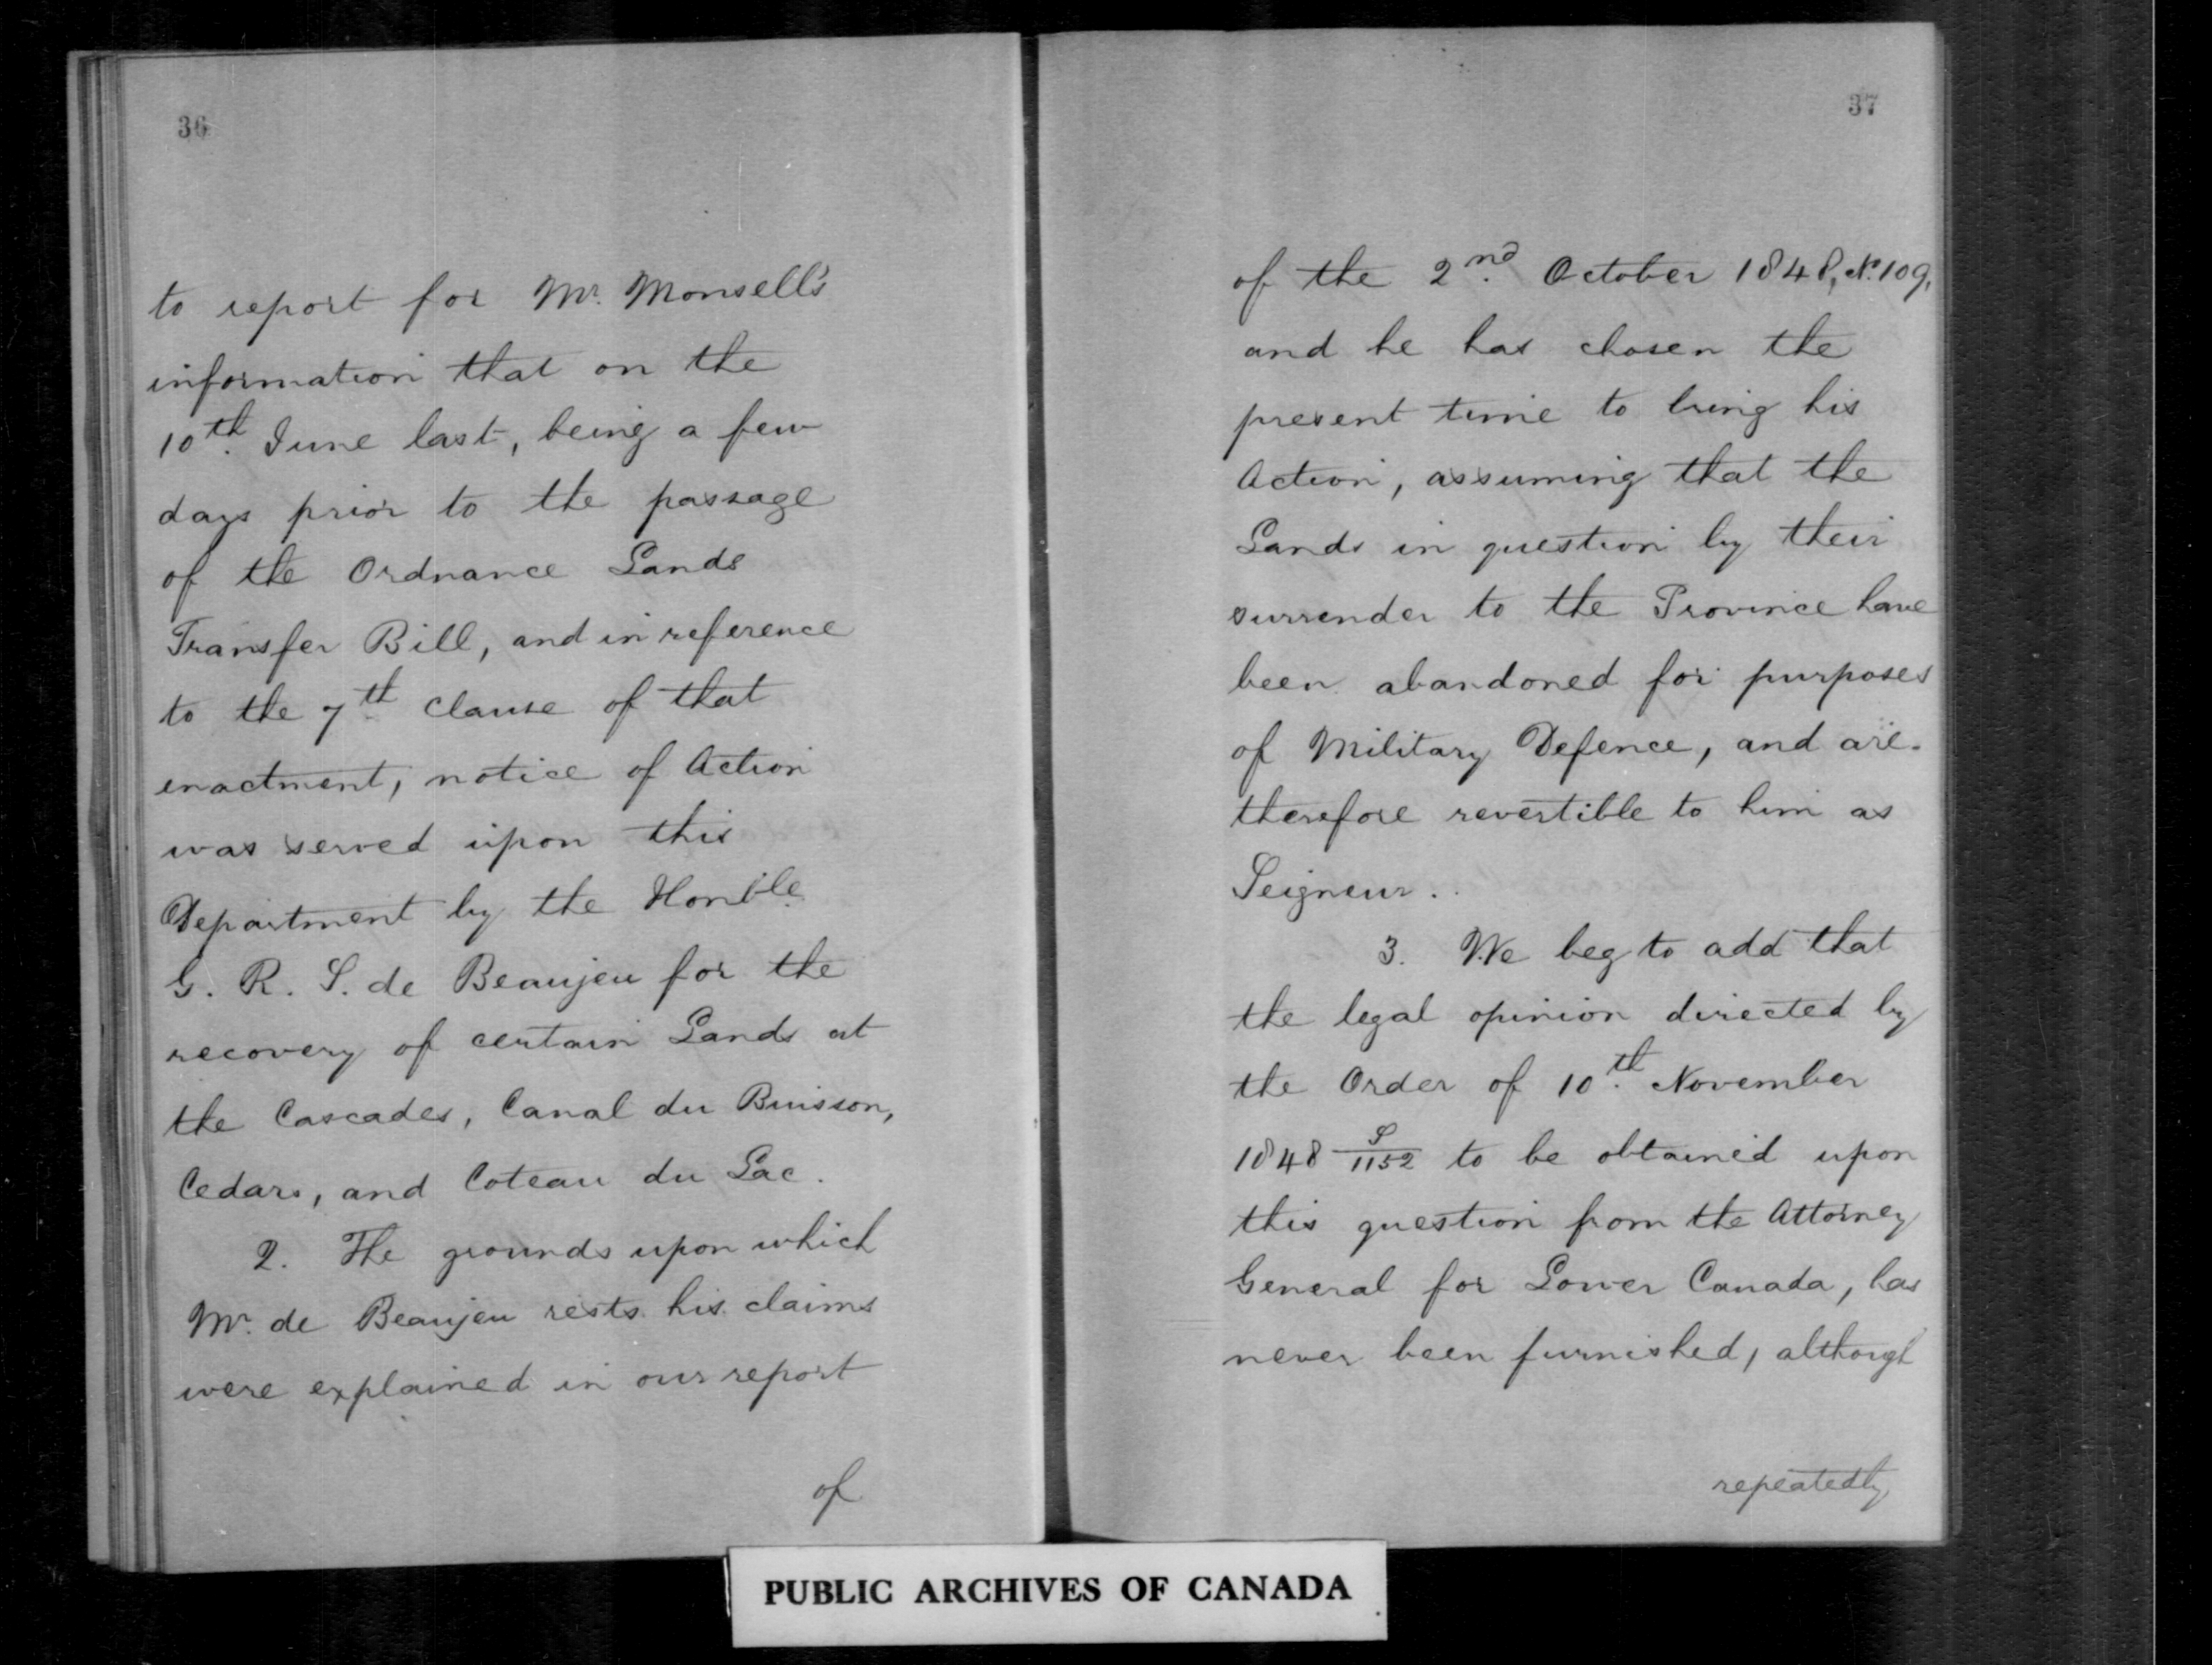 36
to report for Mr. Monsell's
information that on the
10th. June last, being a few
days prior to the passage
of the Ordnance Lands
Transfer Bill, and in reference
to the 7th clause of that
enactment, notice of Action
was served upon this
Department by the Honble.
G. R. S. de Beaujeu for the
recovery of certain Lands at
the Cascades, Canal du Buisson,
Cedars, and Coteau du Lac.
2. The grounds upon which
Mr. de Beaujeu rests his claims
were explained in our report
of
37
of the 2nd. October 1848, No. 109,
and he has chosen the
present time to bring his
Action, assuming that the
Lands in question by their
surrender to the Province have
been abandoned for purposes
of Military Defence, and are
therefore revertible to him as
Seigneur.
3. We beg to add that
the legal opinion directed by
the Order of 10th. November
1848 S/1152 to be obtained upon
this question from the Attorney
General for Lower Canada, has
never been furnished, although
repeatedly
PUBLIC ARCHIVES OF CANADA